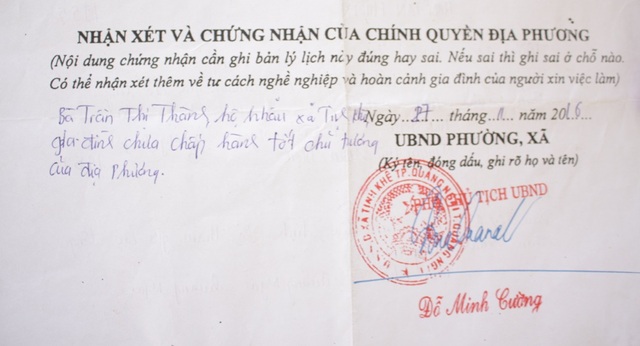 NHẬN XÉT VÀ CHỨNG NHẬN CỦA CHÍNH QUYỀN ĐỊA PHƯƠNG
(Nội dung chứng nhận cần ghi bản lý lịch này đúng hay sai. Nếu sai thì ghi sai ở chỗ nào.
Có thể nhận xét thêm về tư cách nghề nghiệp và hoàn cảnh gia đình của người xin việc làm)
Bà Trần Thị Thành hộ khẩu xã
gia đình chưa chấp hành tốt chủ trương
của địa phương.
Ngày 27 tháng năm 2016
UBND PHƯỜNG, XÃ
(Ký tên, đóng dấu, ghi rõ họ và tên)
PHÓ CHỦ TỊCH UBND
U.B.N.D XÃ TỊNH KHÊ TP.QUẢNG NGÃI T.QUẢNG NGÃI
Đỗ Minh Cường